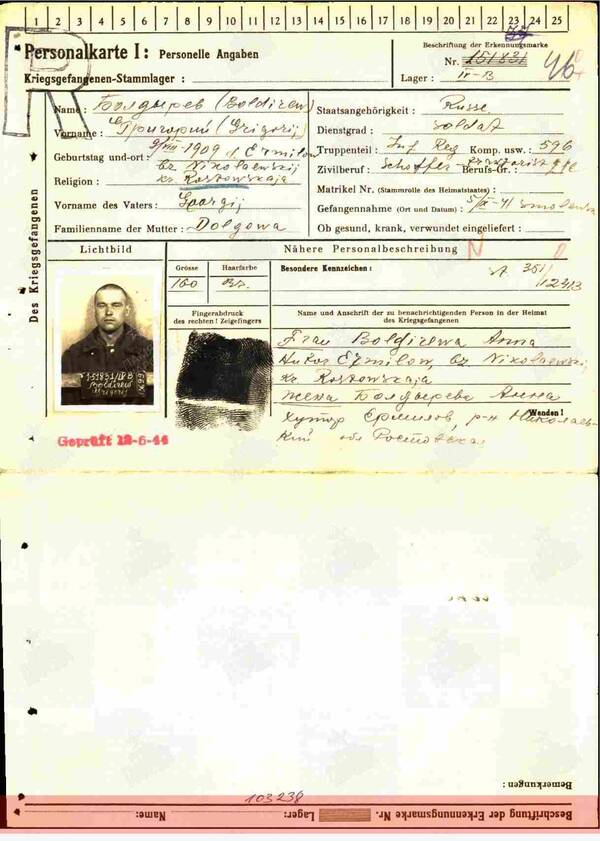 1 2 3 4 5 6 7 8 9 10 11 12 13 14 15 16 17 18 19 20 21 22 23 24 25
R
Personalkarte I: Personelle Angaben
Kriegsgefangenen-Stammlager :
Beschriftung der Erkennungsmarke
Nr. 151831
Lager : IV-B
Des Kriegsgefangenen
Name : Болдырев (Boldirew)
Vorname : Григорий (Grigorij)
Geburtstag und-ort : 9/VIII-1909 Ermilow
bz Nikolaewskij
Religion : kr. Rostowskaja
Vorname des Vaters : Georgij
Familienname der Mutter : Dolgowa
Staatsangehörigkeit : Russe
Dienstgrad : Soldat
Truppenteil : Inf Reg Komp. usw. : 596
Zivilberuf : Berufs-Gr. :
Matrikel Nr. (Stammrolle des Heimatstaates) :
Gefangennahme (Ort und Datum) : 5/IX-41 Smolensk
Ob gesund, krank, verwundet eingeliefert :
Lichtbild
Nähere Personalbeschreibung
Grösse
160
Haarfarbe
Besondere Kennzeichen :
Fingerabdruck
des rechten ! Zeigefingers
Name und Anschrift der zu benachrichtigenden Person in der Heimat
des Kriegsgefangenen
Frau Boldirewa Anna
Hutor Ermilow, bz Nikolaewskij
kr Rostowskaja
жена Болдырева Анна
Wenden !
хутор Ермилов, р-н Николаев-
ский обл Ростовская
151831/IV B
Boldirew
Geprüft 12-6-44
Bemerkungen :
103238
Name: Lager: Beschriftung der Erkennungsmarke Nr.